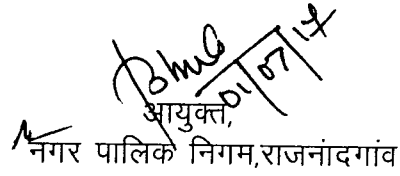 01/07/17
आयुक्त,
नगर पालिक निगम,राजनांदगांव